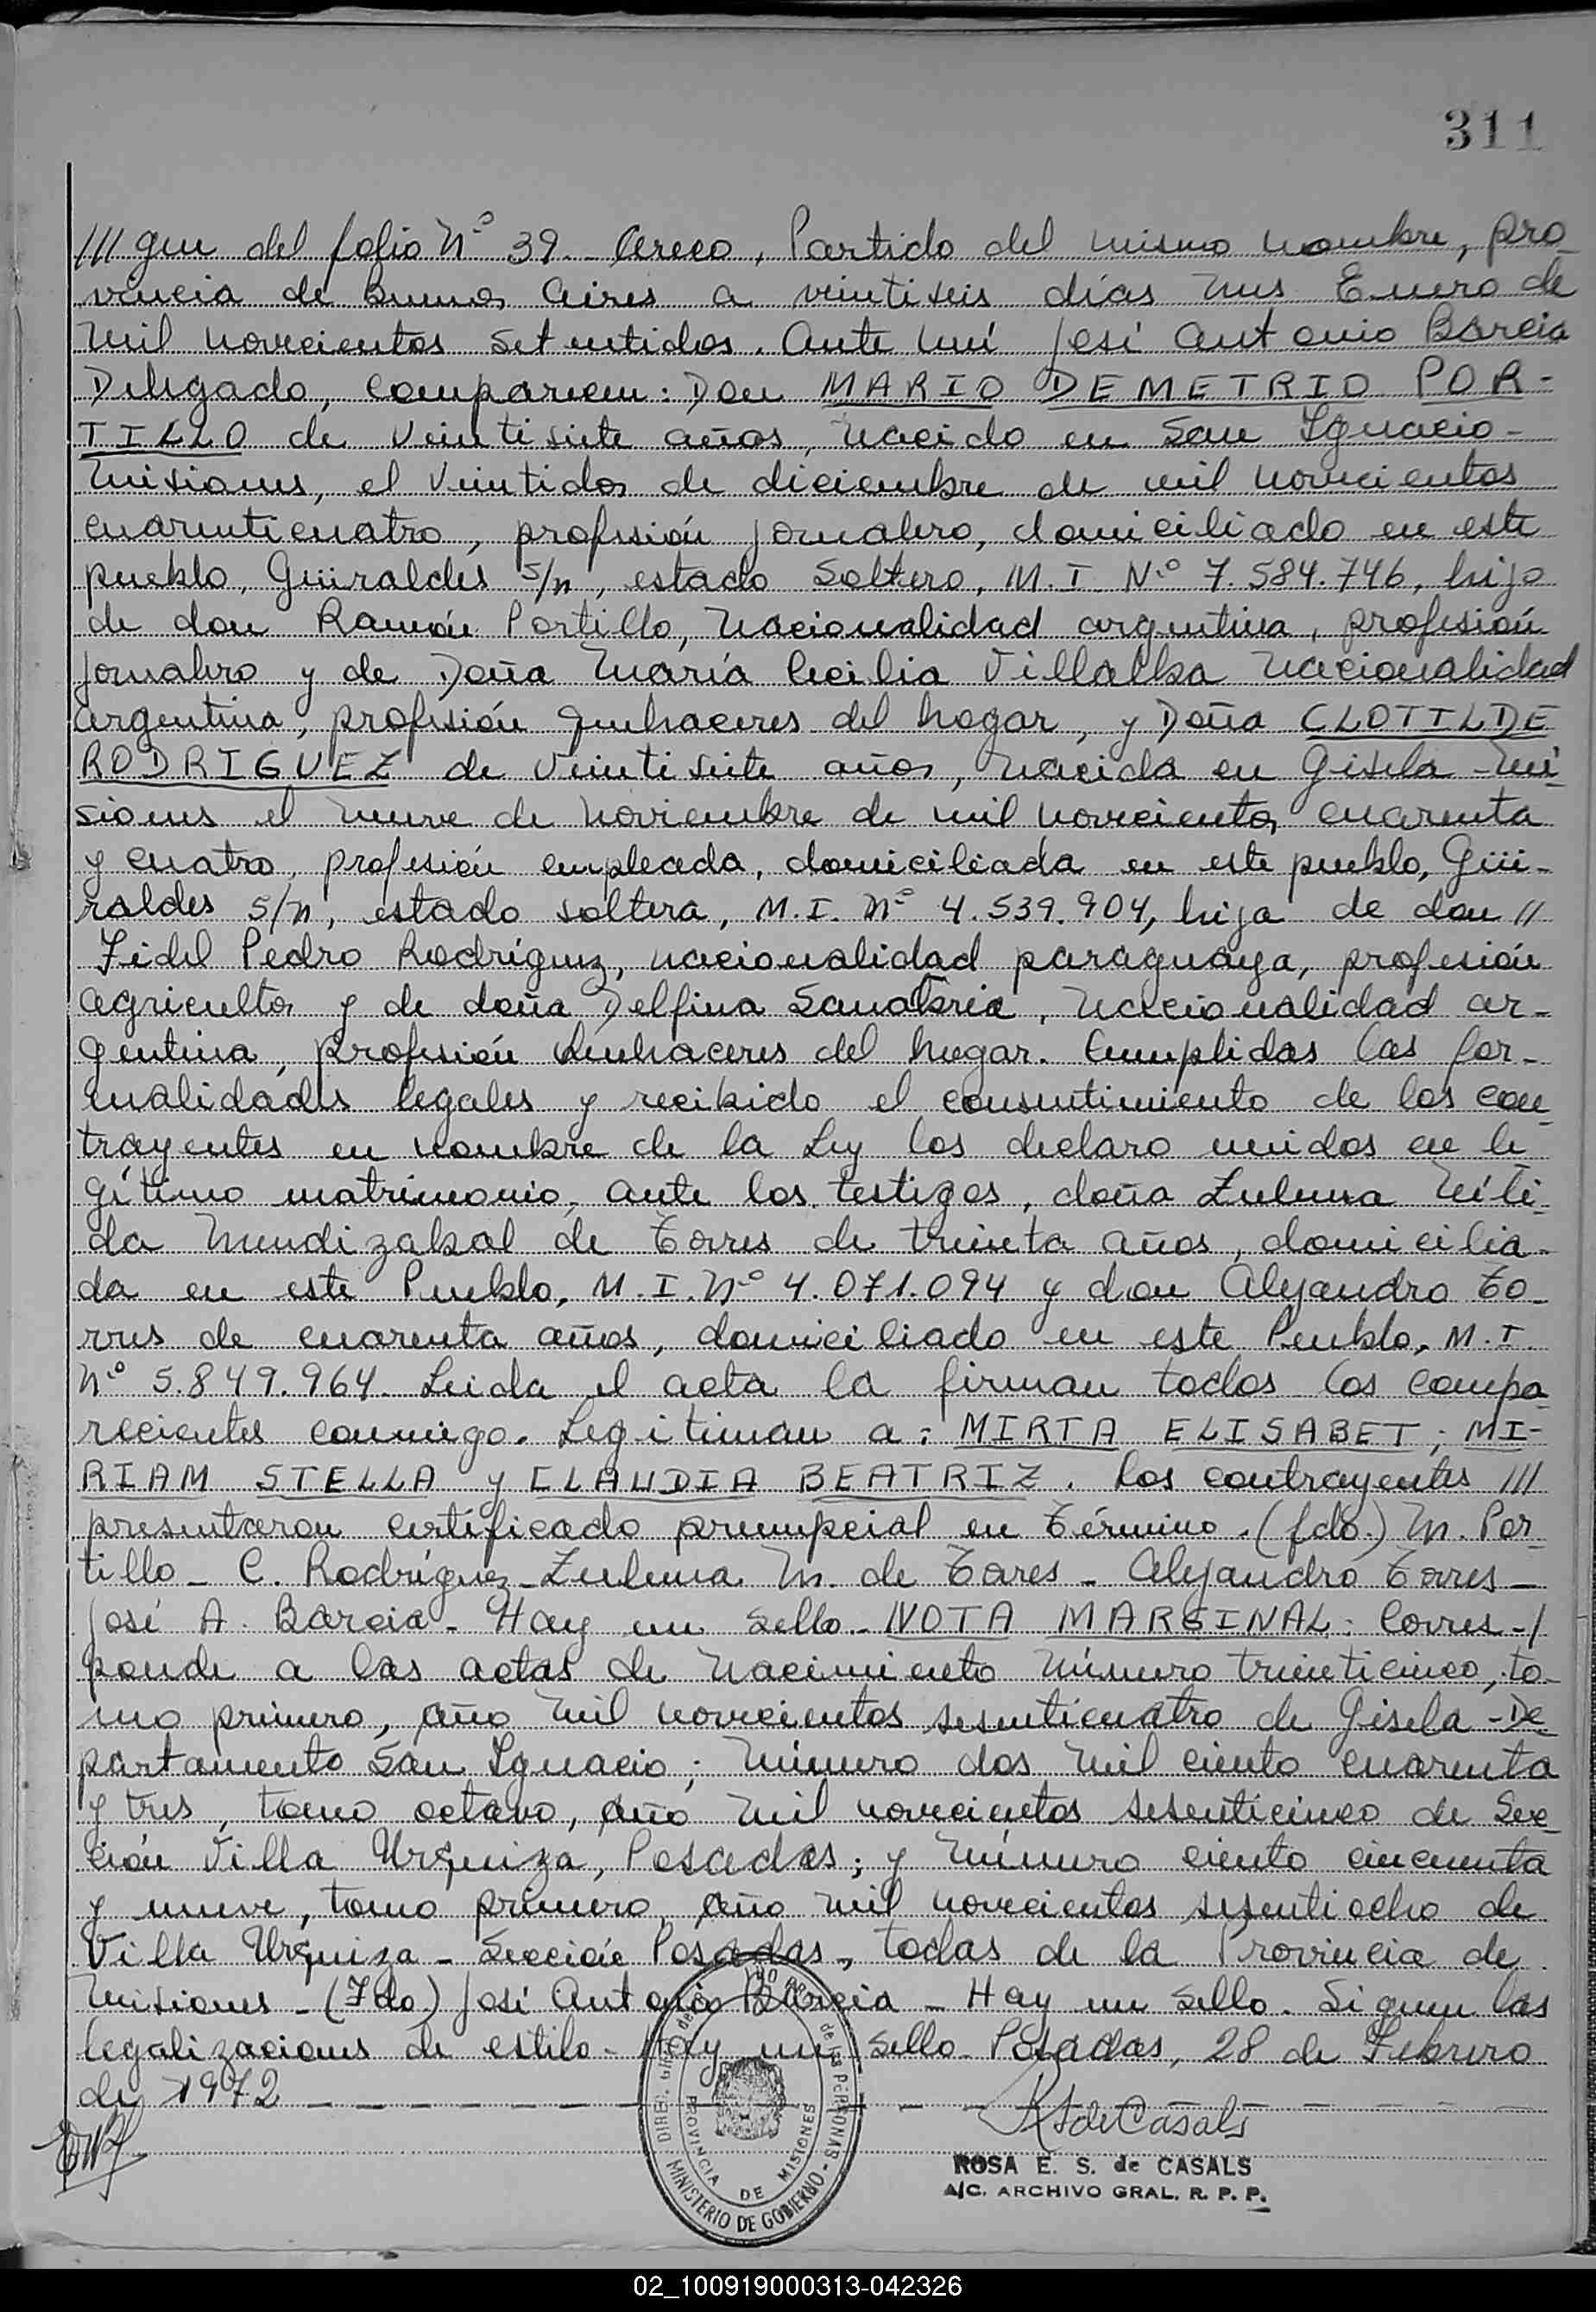 311
///gue del folio Nº 39._ Areco, Partido del mismo nombre, pro_
vincia de Buenos Aires a veintiseis días mes Enero de
mil novecientos setentidos. Ante mí José Antonio Barcia
Delegado, comparecen: Don MARIO DEMETRIO POR-
TILLO de veintisiete años, nacido en San Ignacio-
Misiones, el veintidos de diciembre de mil novecientos
cuarenticuatro, profesión jornalero, domiciliado en este
pueblo, Güiraldes s/n, estado soltero, M.I. Nº 7.584.746, hijo
de don Ramón Portillo, nacionalidad argentina, profesión
jornalero y de Doña María Cecilia Villalba nacionalidad
argentina, profesión quehaceres del hogar, y Doña CLOTILDE
RODRIGUEZ de veintisiete años, nacida en Gisela-Mi-
siones el nueve de noviembre de mil novecientos cuarenta
y cuatro, profesión empleada, domiciliada en este pueblo, Güi-
raldes s/n, estado soltera, M.I. Nº 4.539.904, hija de don //
Fidel Pedro Rodríguez, nacionalidad paraguaya, profesión
agricultor y de doña Delfina Sanabria, nacionalidad ar-
gentina, profesión quehaceres del hogar. Cumplidas las for-
malidades legales y recibido el consentimiento de los con_
trayentes en nombre de la Ley los declaro unidos en le_
gítimo matrimonio, ante los testigos, doña Zulema Nili-
da Mendizabal de Torres de treinta años, domicilia-
da en este Pueblo, M.I. Nº 4.071.094 y don Alejandro To-
rres de cuarenta años, domiciliado en este Pueblo, M.I.
Nº 5.849.964. Leida el acta la firman todos los compa_
recientes conmigo. Legitiman a: MIRTA ELISABET; MI-
RIAM STELLA y CLAUDIA BEATRIZ. Los contrayentes ///
presentaron certificado prenupcial en término. (fdo.) M. Por_
tillo_ C. Rodríguez_ Zulema M. de Torres_ Alejandro Torres_
José A. Barcia_ Hay un sello._ NOTA MARGINAL: Corres-/
ponde a las actas de nacimiento número treinticinco, to-
mo primero, año mil novecientos sesenticuatro de Gisela-De_
partamento San Ignacio; número dos mil ciento cuarenta
y tres, tomo octavo, año mil novecientos sesenticinco de Sec_
ción Villa Urquiza, Posadas; y número ciento cincuenta
y nueve, tomo primero, año mil novecientos sesentiocho de
Villa Urquiza_ Sección Posadas, todas de la Provincia de
Misiones_ (Fdo.) José Antonio Barcia_ Hay un sello. Siguen las
legalizaciones de estilo_ Hay un sello_ Posadas, 28 de Febrero
de 1972
RSdeCasals
ROSA E. S. de CASALS
A/C. ARCHIVO GRAL. R. P. P.
PROVINCIA DE MISIONES
MINISTERIO DE GOBIERNO
02_100919000313-042326